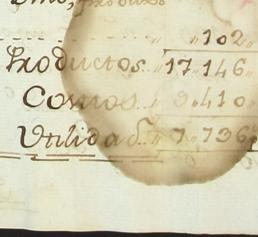 102
Productos.. 17.146
Costos.. 9.410
Utilidad.. 7.736